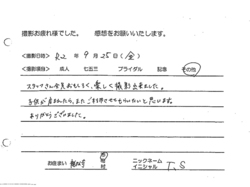 撮影お疲れ様でした。 感想をお願いいたします。
＜撮影日時＞ R2 年 9 月 25 日 (金)
＜撮影項目＞ 成人 七五三 ブライダル 証写 その他
スタッフさん全員おもしろく、楽しく撮影出来ました。
子供が産まれたら、またご利用させてもらいたいと思います。
ありがとうございました。
お住まい 市 町 村
ニックネーム
イニシャル T.S